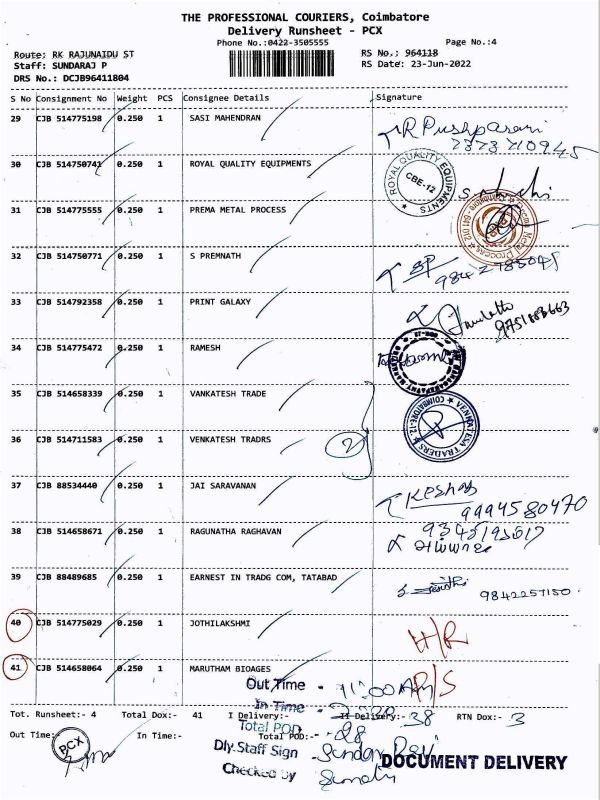 THE PROFESSIONAL COURIERS, Coimbatore
Delivery Runsheet - PCX
Phone No.:0422-3505555
Page No.:4
Route: RK RAJUNAIDU ST
RS No.: 964118
Staff: SUNDARAJ P
RS Date: 23-Jun-2022
DRS No.: DCJB96411804
S No Consignment No Weight PCS Consignee Details Signature
29 CJB 514775198 0.250 1 SASI MAHENDRAN
R Pushparani
30 CJB 514750741 0.250 1 ROYAL QUALITY EQUIPMENTS
ROYAL QUALITY EQUIPMENTS
CBE-12
31 CJB 514775555 0.250 1 PREMA METAL PROCESS
32 CJB 514750771 0.250 1 S PREMNATH
33 CJB 514792358 0.250 1 PRINT GALAXY
34 CJB 514775472 0.250 1 RAMESH
35 CJB 514658339 0.250 1 VANKATESH TRADE
36 CJB 514711583 0.250 1 VENKATESH TRADRS
2
VENKATESA TRADERS
COIMBATORE-12
37 CJB 88534440 0.250 1 JAI SARAVANAN
Keshav
9994580470
38 CJB 514658671 0.250 1 RAGUNATHA RAGHAVAN
39 CJB 88489685 0.250 1 EARNEST IN TRADG COM, TATABAD
9842257150
40 CJB 514775029 0.250 1 JOTHILAKSHMI
H/R
41 CJB 514658064 0.250 1 MARUTHAM BIOAGES
R/S
Out Time - 11:00 AM
In Time -
Tot. Runsheet:- 4 Total Dox:- 41 I Delivery:- II Delivery:- 38 RTN Dox:- 3
Total POD - 28
Out Time: In Time:- Total POD:-
PCX
Dly.Staff Sign - Sundar Raj
Checked by
DOCUMENT DELIVERY